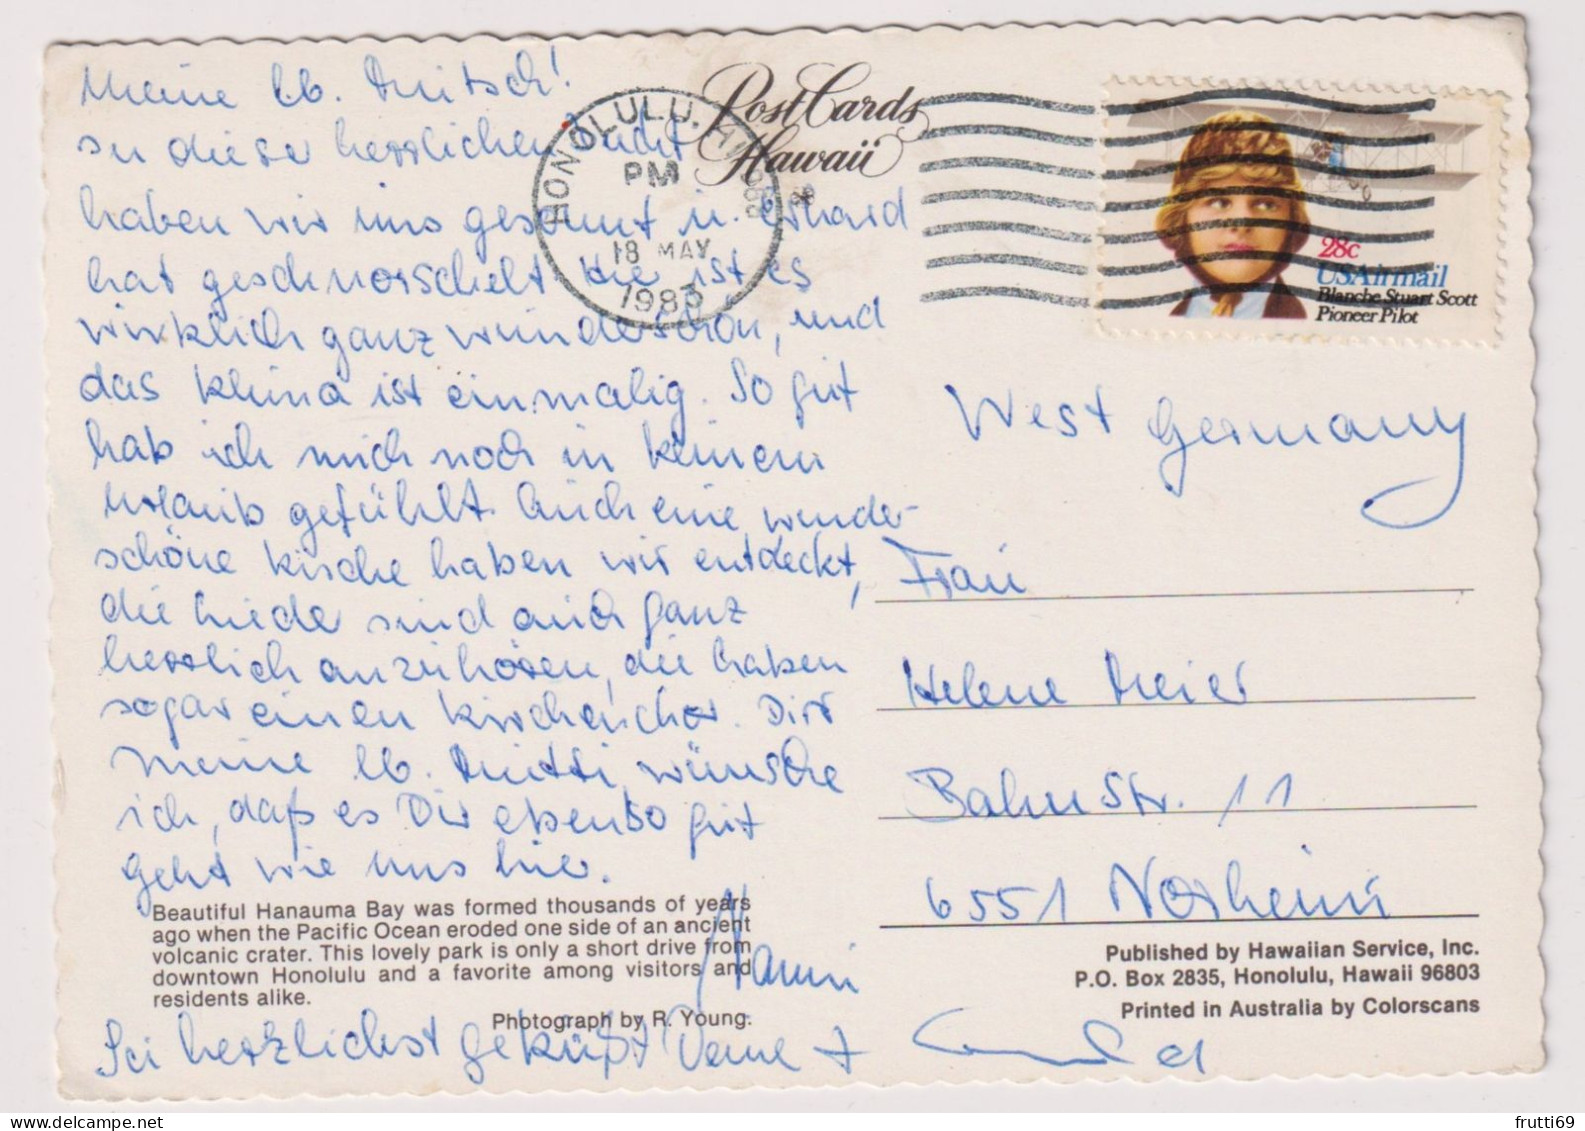 Meine lb. Mutsch!
In dieser herrlichen Bucht
haben wir uns gesonnt u. Erhard
hat geschnorschelt. Hier ist es
wirklich ganz wunderschön, und
das Klima ist einmalig. So gut
hab ich mich noch in keinem
Urlaub gefühlt. Auch eine wunder-
schöne Kirche haben wir entdeckt,
die Lieder sind auch ganz
herrlich anzuhören, die haben
sogar einen Kirchenchor. Dir
meine lb. Mutti, wünsche
ich, daß es Dir ebenso gut
geht wie uns hier.
Sei herzlichst geküßt Deine
Post Cards
Hawaii
HONOLULU, HI
PM
18 MAY
1983
28c
USAirmail
Blanche Stuart Scott
Pioneer Pilot
West Germany
Frau
Helene Meier
Bahnstr. 11
6551 Norheim
Beautiful Hanauma Bay was formed thousands of years
ago when the Pacific Ocean eroded one side of an ancient
volcanic crater. This lovely park is only a short drive from
downtown Honolulu and a favorite among visitors and
residents alike.
Photograph by R. Young.
Published by Hawaiian Service, Inc.
P.O. Box 2835, Honolulu, Hawaii 96803
Printed in Australia by Colorscans
frutti69